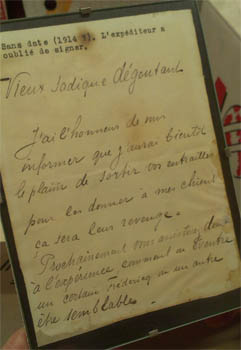 Sans date (1914 ?). L'expéditeur a
oublié de signer.
Vieux Sadique dégoutant
J'ai l'honneur de vous
informer que j'aurai bientôt
le plaisir de sortir vos entrailles
pour les donner à mes chiens
ça sera leur revenge.
Prochainement vous
à l'expérience comment on éventre
un certain Fredericq ou un autre
être semblable.